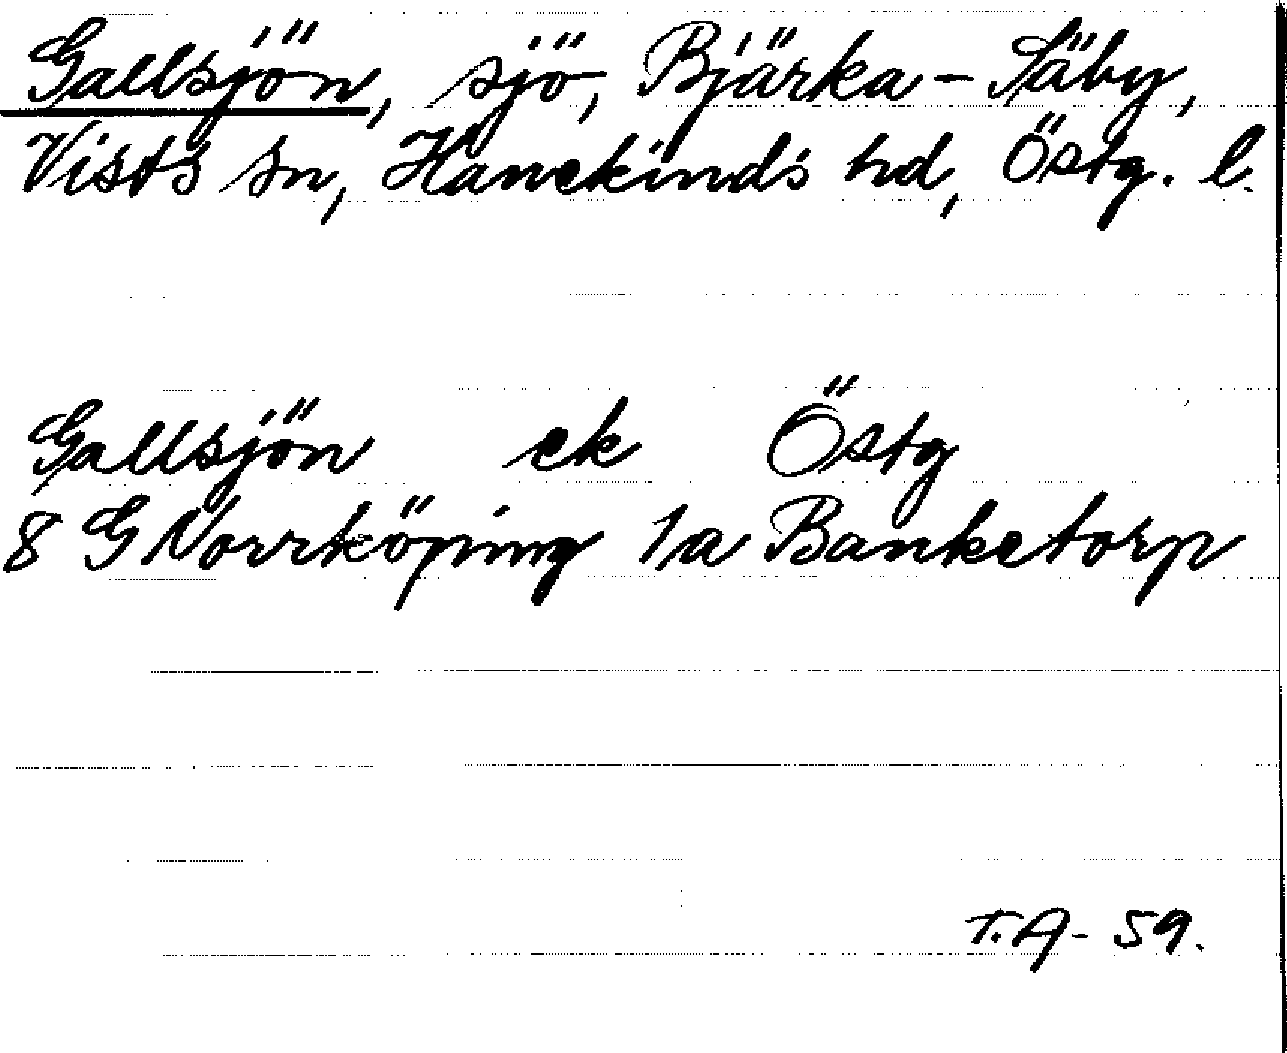 Gallsjön, sjö, Bjärka-Säby,
Vists sn, Hanekinds hd, Östg. l.
Gallsjön ek Östg
8 G Norrköping 1a Banketorp
T.A- 59.